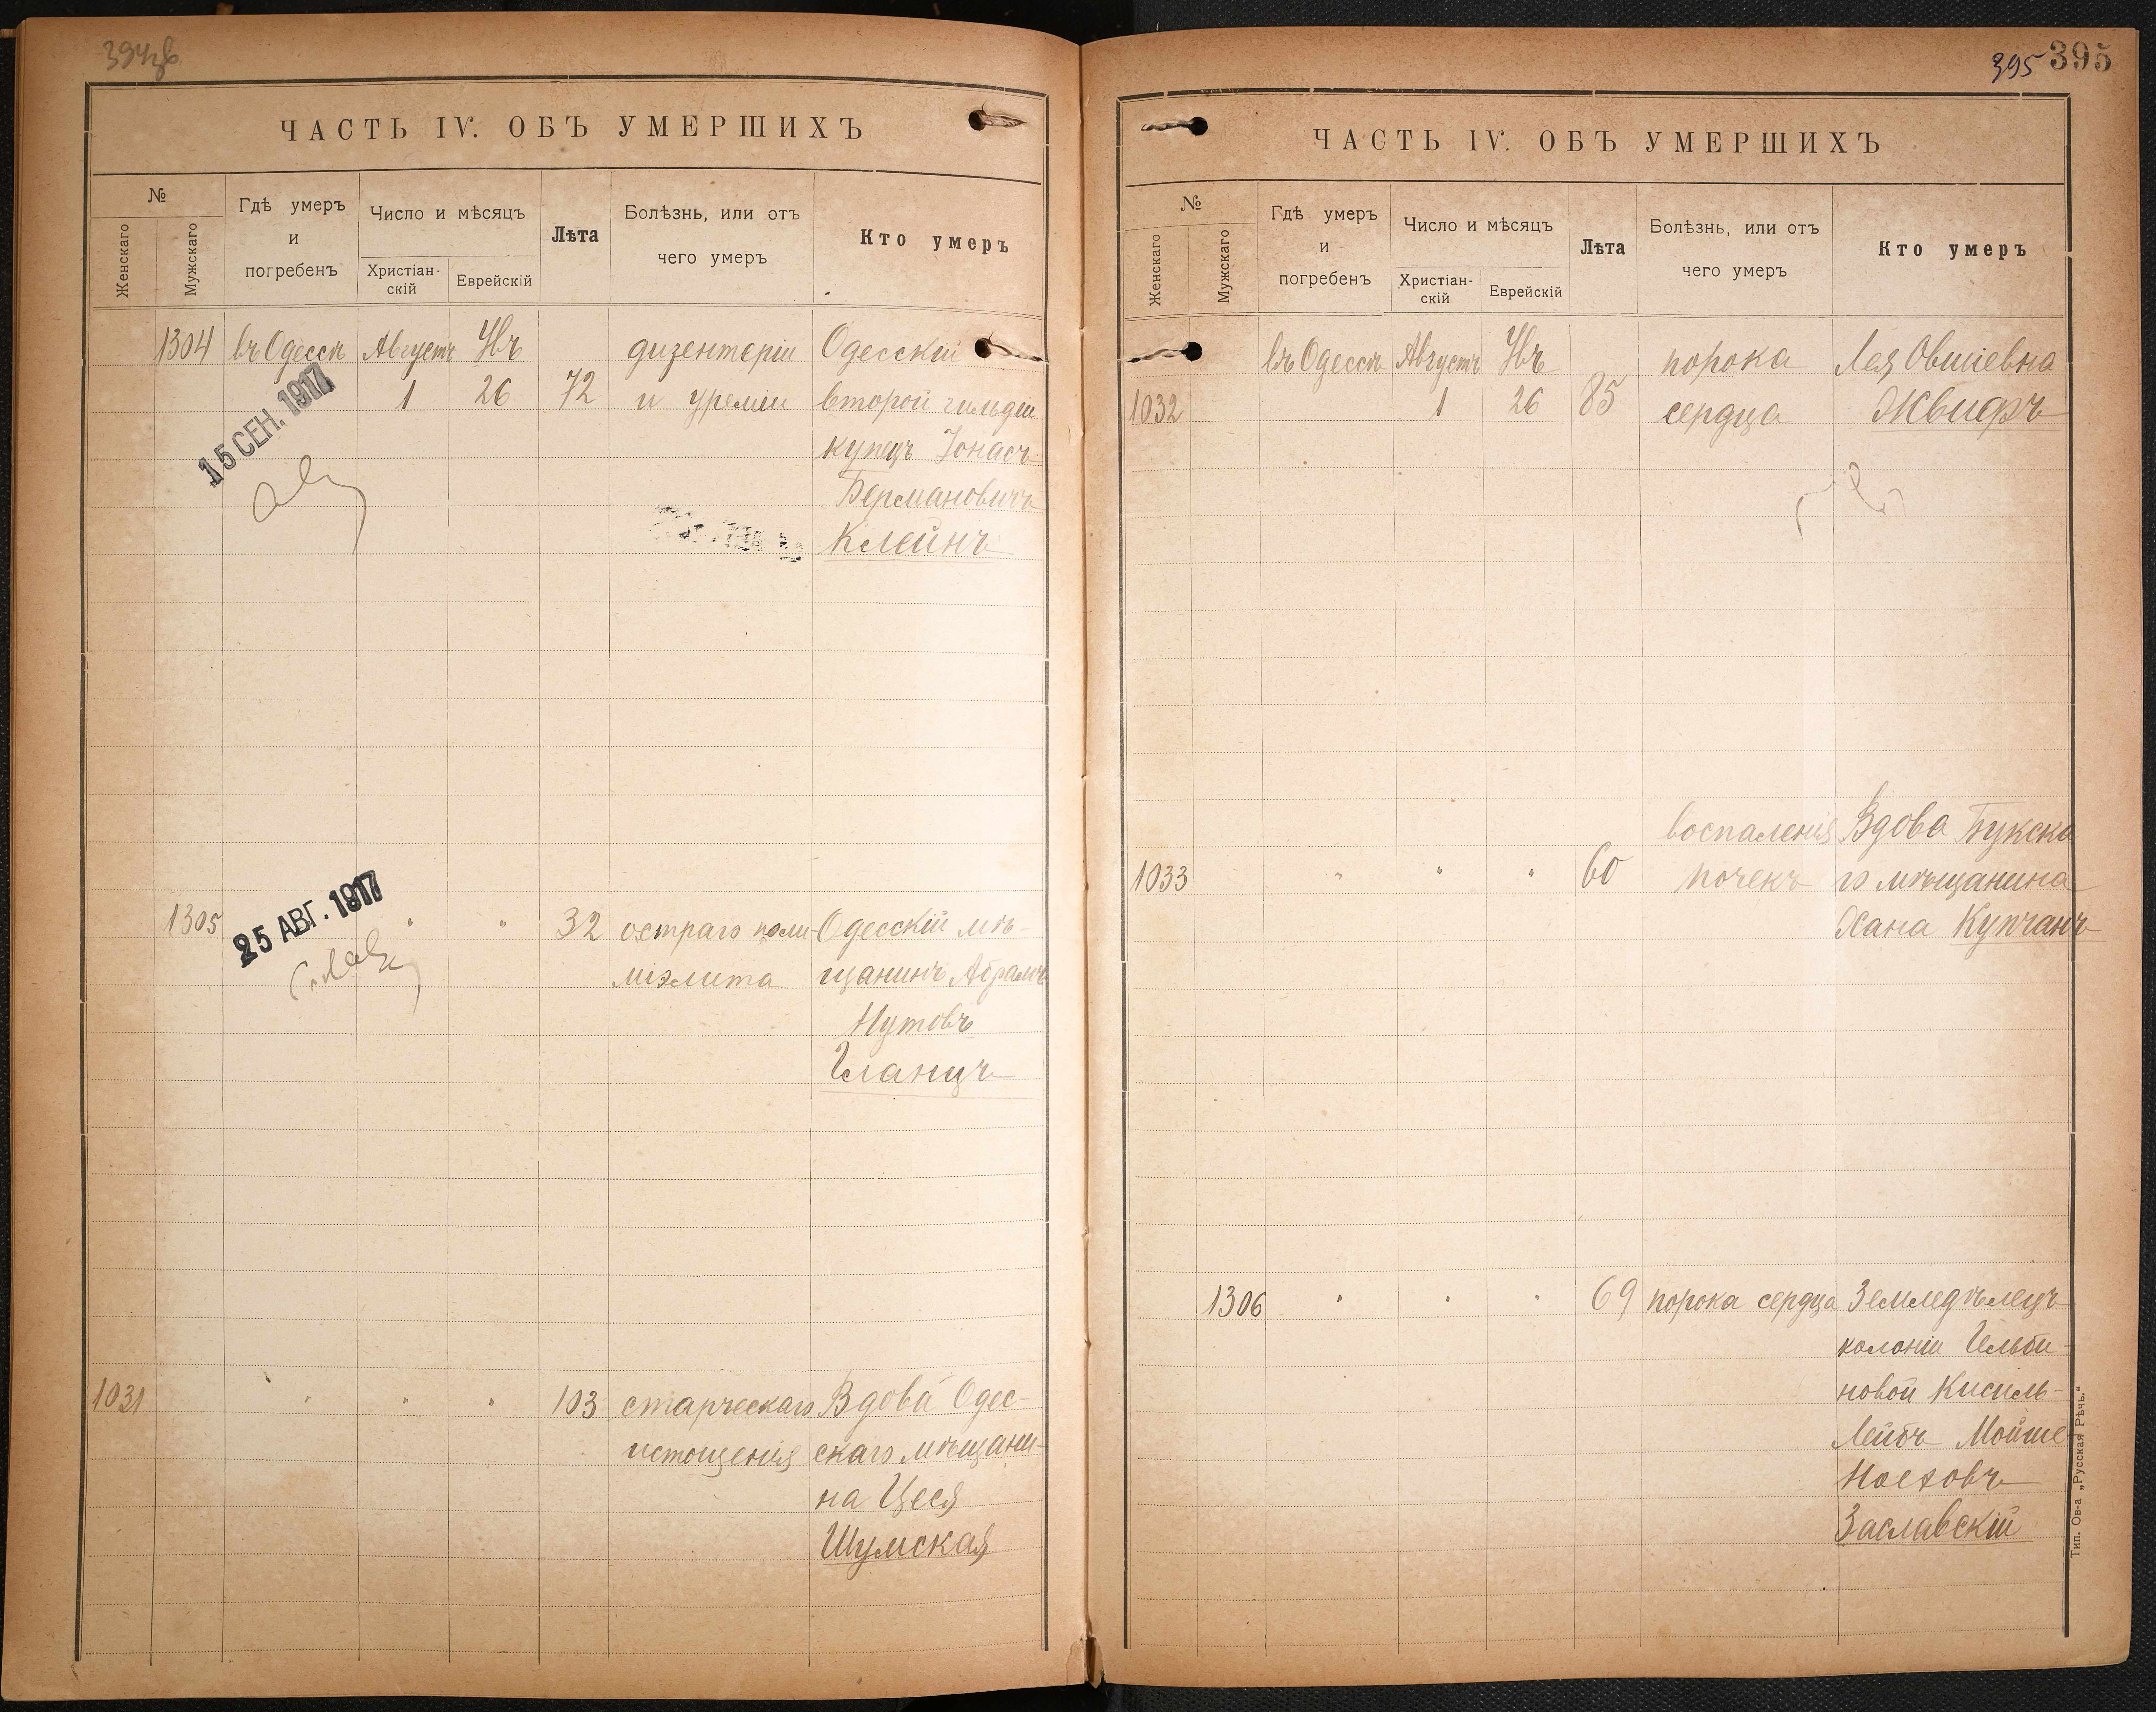 394об
ЧАСТЬ IV. ОБЪ УМЕРШИХЪ
№
Женскаго
Мужскаго
Гдѣ умеръ
и
погребенъ
Число и мѣсяцъ
Христіан-
скій
Еврейскій
Лѣта
Болѣзнь, или отъ
чего умеръ
Кто умеръ
1304 въ Одессѣ Августъ Увъ дизентеріи Одесскій
1 26 72 и уреміи второй гильдіи
купецъ Іонасъ
Бермановичъ
Клейнъ
15 СЕН. 1917
1305 " " 32 остраго поли- Одесскій мѣ-
міэлита щанинъ Абрамъ
Нутовъ
Гланцъ
25 АВГ. 1917
1031 " " " 103 старческаго Вдова Одес-
истощенія скаго мѣщани-
на Цеся
Шумская
395 395
ЧАСТЬ IV. ОБЪ УМЕРШИХЪ
№
Женскаго
Мужскаго
Гдѣ умеръ
и
погребенъ
Число и мѣсяцъ
Христіан-
скій
Еврейскій
Лѣта
Болѣзнь, или отъ
чего умеръ
Кто умеръ
въ Одессѣ Августъ Увъ порока Лея Овшіевна
1032 1 26 85 сердца Жвифъ
воспаленія Вдова Букска
1033 " " " 60 почекъ го мѣщанина
Хана Купчанъ
1306 " " " 69 порока сердца Земледѣлецъ
колоніи Гельби-
новой Кисиль-
Лейбъ Мойше
Ноеховъ
Заславскій
Тип. Ов-а „Русская Рѣчь."